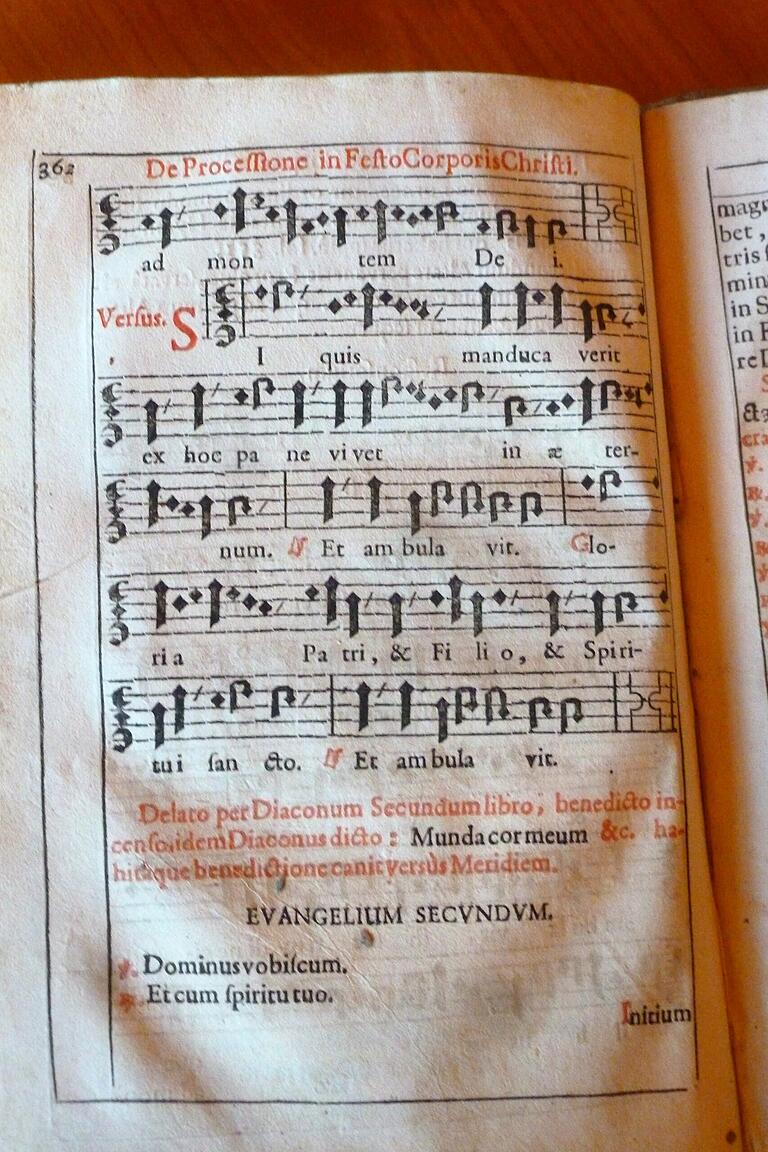 362
De Processione in Festo Corporis Christi.
ad mon tem De i.
Versus. S
I quis manduca verit
ex hoc pa ne vi vet in æ ter-
num. Et am bula vit. Glo-
ri a Pa tri, & Fi li o, & Spiri-
tu i san cto. Et am bula vit.
Delato per Diaconum Secundum libro, benedicto in-
censo, idem Diaconus dicto : Munda cor meum &c. ha-
bitaque benedictione canit versùs Meridiem.
EVANGELIUM SECVNDVM.
℣. Dominus vobiscum.
℟. Et cum spiritu tuo.
Initium
bet,
tris
min
in S